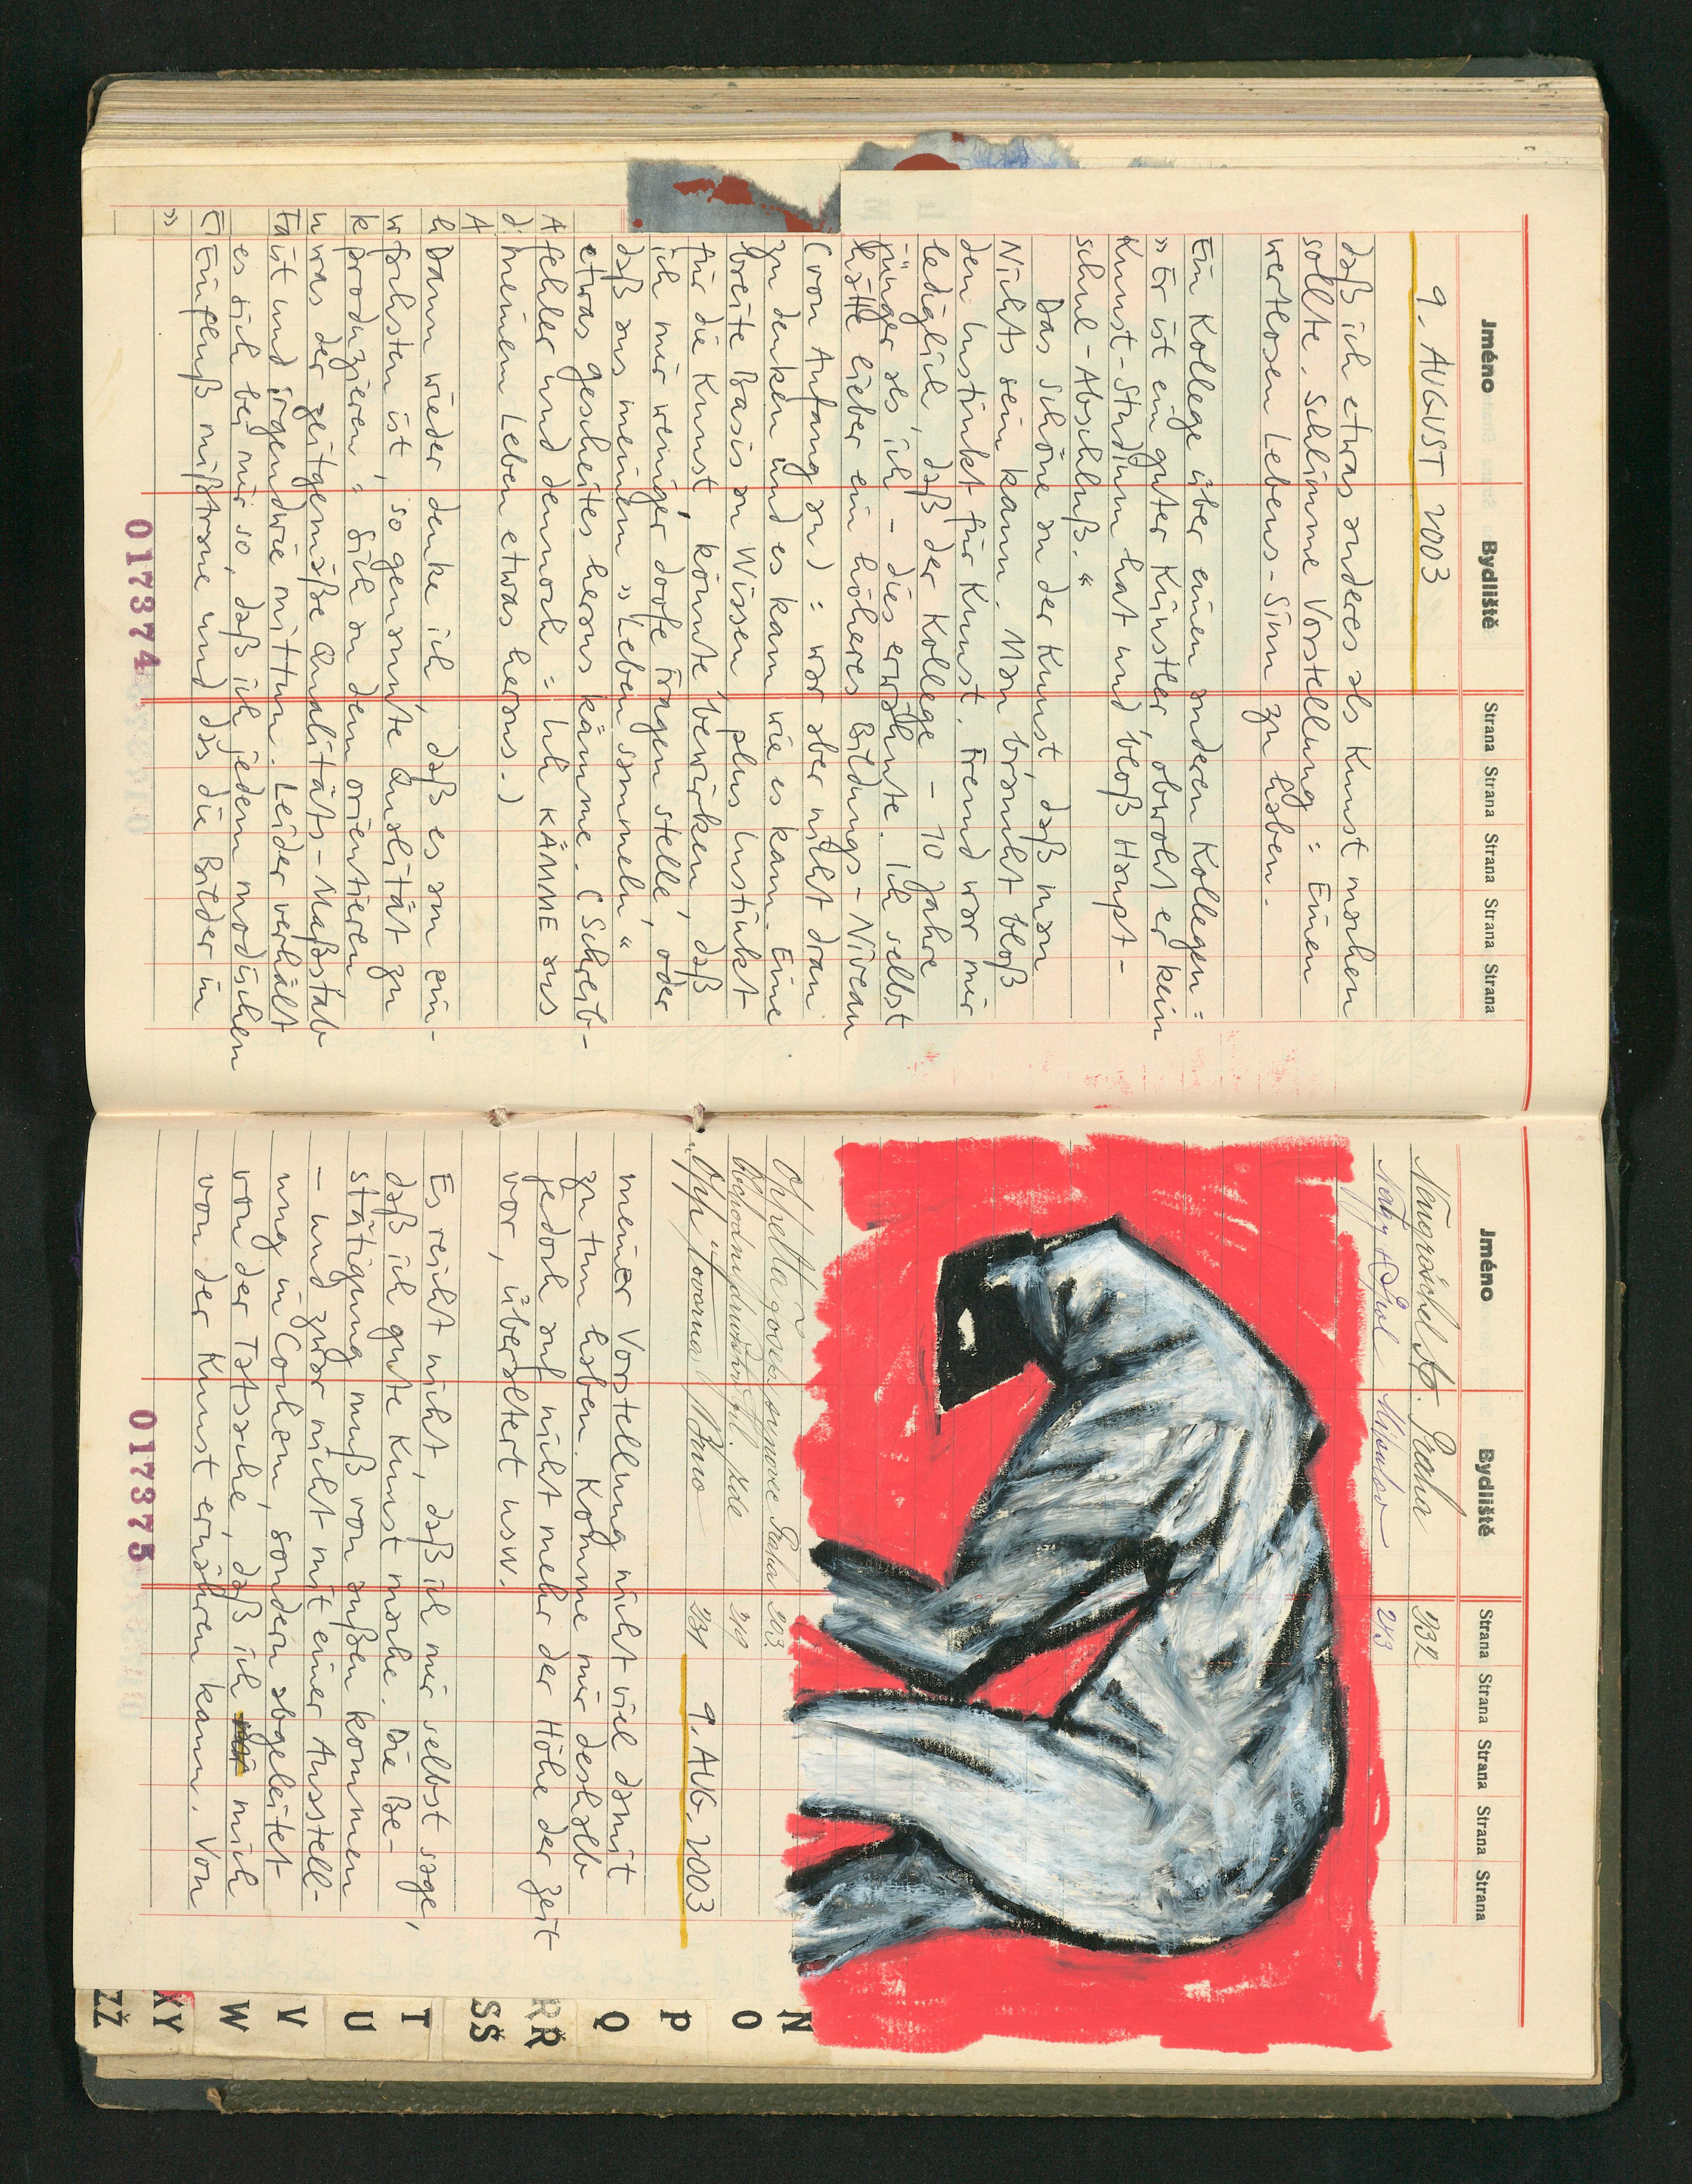 Jméno Bydliště Strana Strana Strana Strana Strana
9. AUGUST 2003
daß ich etwas anderes als Kunst machen
sollte. Schlimme Vorstellung = Einen
wertlosen Lebens-Sinn zu haben.
Ein Kollege über einen anderen Kollegen =
» Er ist ein guter Künstler, obwohl er kein
Kunst-Studium hat und bloß Haupt-
schul-Abschluß. “
Das schöne an der Kunst, daß man
Nichts sein kann. Man braucht bloß
den Instinkt für Kunst. Fremd war mir
lediglich, daß der Kollege - 10 Jahre
jünger als ich - dies erwähnte. Ich selbst
hätte lieber ein höheres Bildungs-Niveau
(von Anfang an) = war aber nicht dran
zu denken und es kam wie es kam. Eine
breite Basis an Wissen plus Instinkt
für die Kunst, könnte bewirken, daß
ich mir weniger doofe Fragen stelle, oder
daß aus meinem » Leben sammeln “
etwas gescheites heraus kämme. (Schreib-
A fehler und dennoch = Ich KÄMME aus
d meinem Leben etwas heraus.)
A
h Dann wieder denke ich, daß es am ein-
w fachsten ist, so genannte Qualität zu
k produzieren = Sich an dem orientieren
u was der zeitgemäße Qualitäts-Maßstab
ist und irgendwie mittun. Leider verhält
es sich bei mir so, daß ich jedem modischen
E Einfluß mißtraue und das die Bilder in
»
017374
Jméno Bydliště Strana Strana Strana Strana Strana
Praha 232
243
Praha 203.
219
Brno 231
9. AUG. 2003
meiner Vorstellung nicht viel damit
zu tun haben. Komme mir deshalb
jedoch auf nicht mehr der Höhe der Zeit
vor, überaltert usw.
Es reicht nicht, daß ich mir selbst sage,
daß ich gute Kunst mache. Die Be-
stätigung muß von außen kommen
- und zwar nicht mit einer Ausstell-
ung in Cochem, sondern abgeleitet
von der Tatsache, daß ich mich
von der Kunst ernähren kann. Von
017375
N
O
P
Q
RŘ
SŠ
T
U
V
W
XY
ZŽ